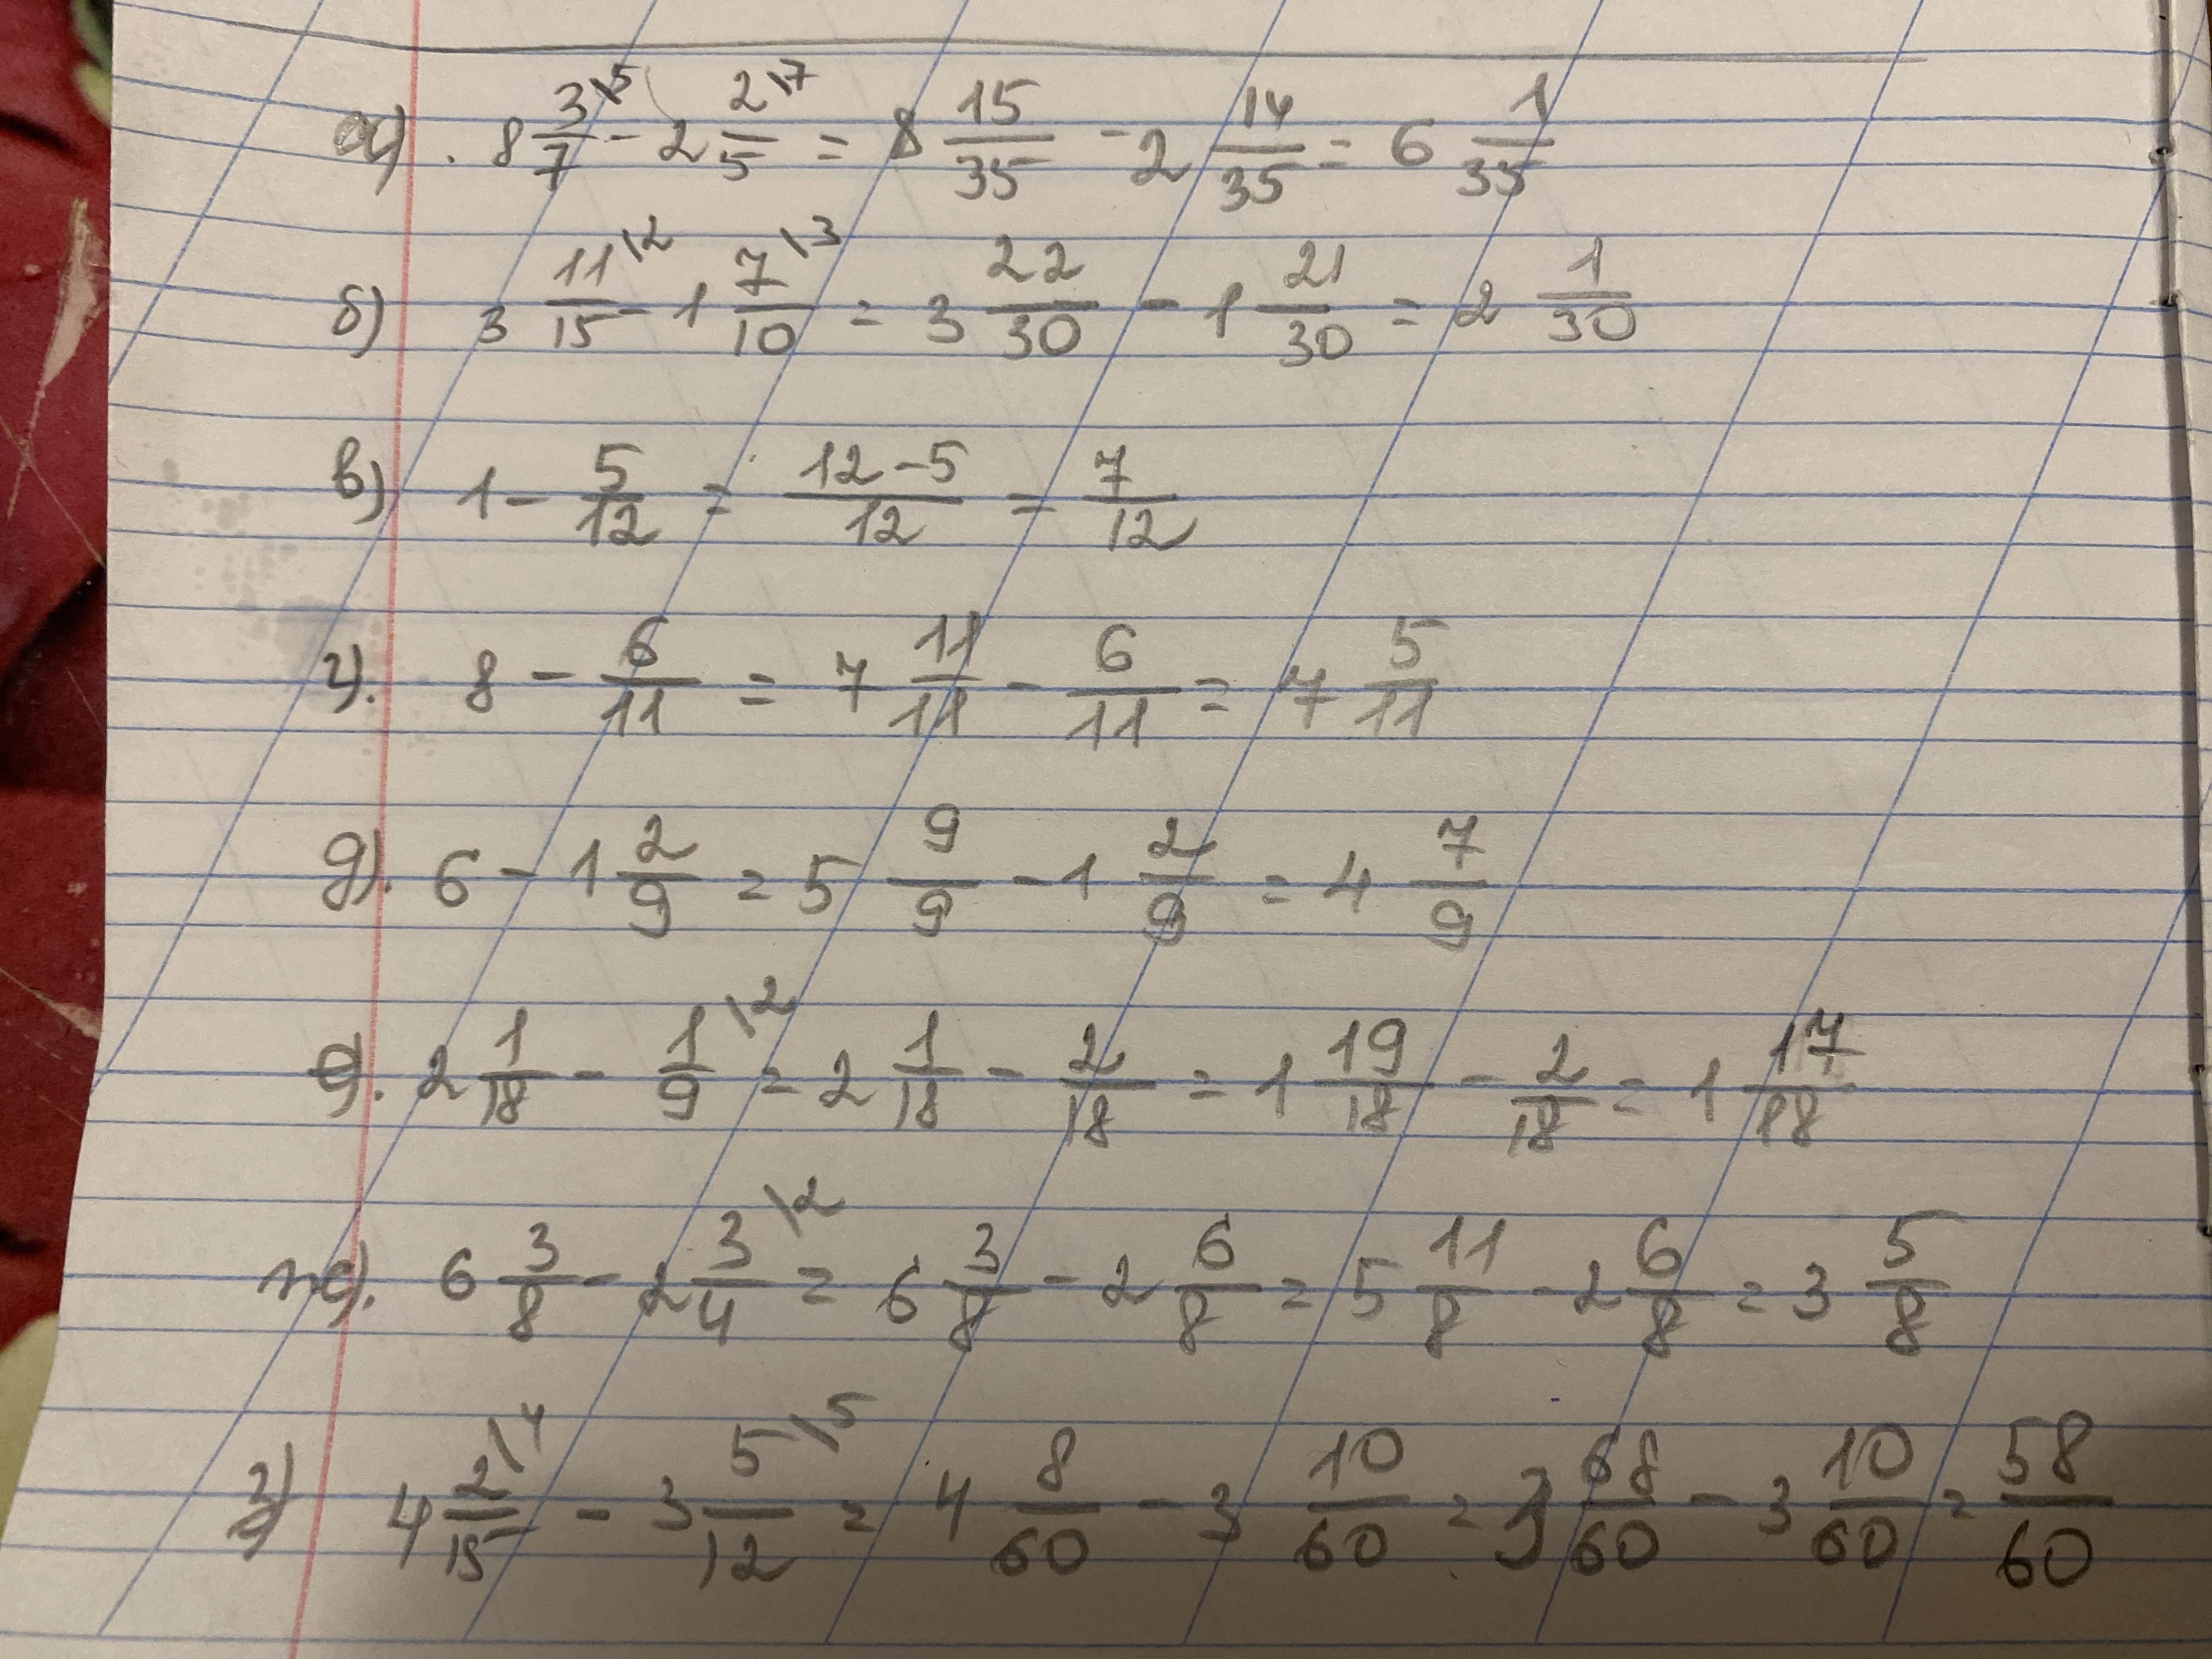 а). 8 3/7\5 - 2 2/5\7 = 8 15/35 - 2 14/35 = 6 1/35
б) 3 11/15\2 - 1 7/10\3 = 3 22/30 - 1 21/30 = 2 1/30
в) 1 - 5/12 = 12-5/12 = 7/12
г). 8 - 6/11 = 7 11/11 - 6/11 = 7 5/11
д). 6 - 1 2/9 = 5 9/9 - 1 2/9 = 4 7/9
е). 2 1/18 - 1/9\2 = 2 1/18 - 2/18 = 1 19/18 - 2/18 = 1 17/18
ж). 6 3/8 - 2 3/4\2 = 6 3/8 - 2 6/8 = 5 11/8 - 2 6/8 = 3 5/8
з) 4 2/15\4 - 3 5/12\5 = 4 8/60 - 3 10/60 = 3 68/60 - 3 10/60 = 58/60